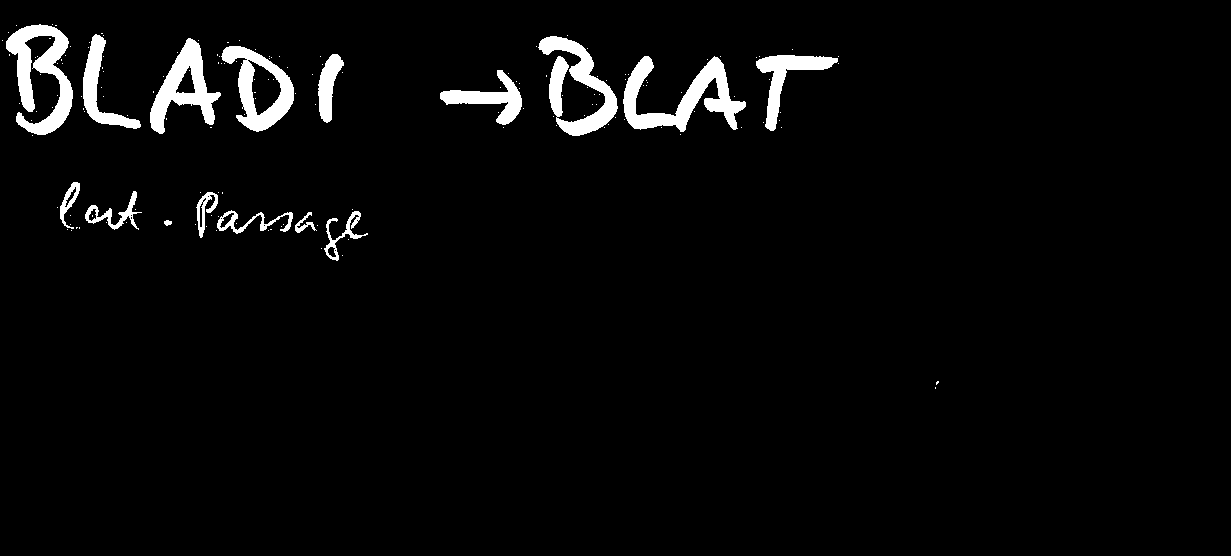 BLADI → BLAT
last. Passage